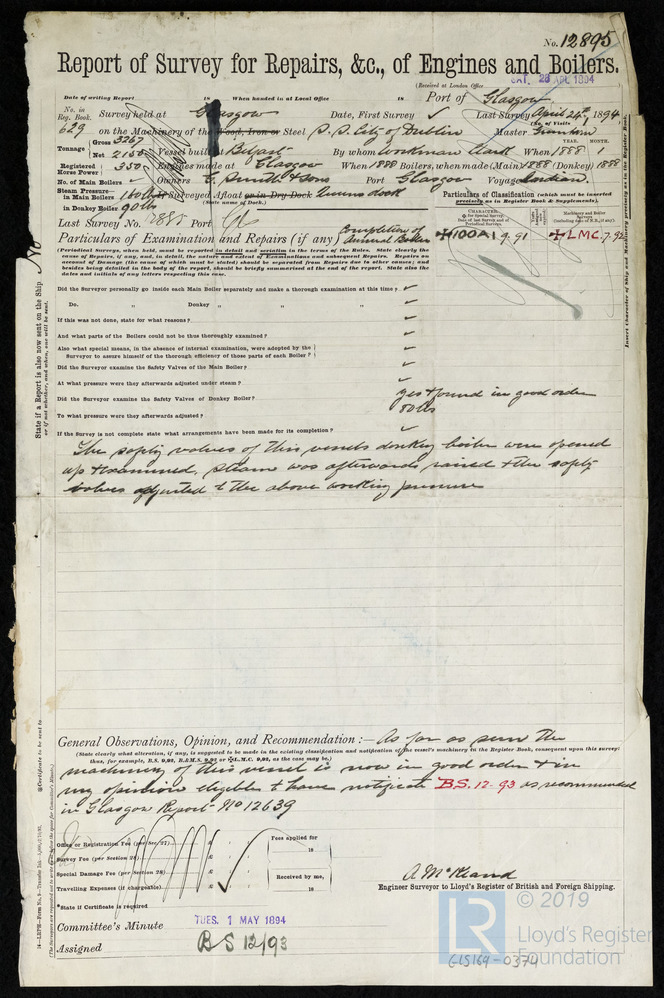 No. 12895
Report of Survey for Repairs, &c., of Engines and Boilers.
(Received at London Office SAT. 28 APL 1894)
Date of writing Report 18 When handed in at Local Office 18 Port of Glasgow
No. in Reg. Book. 629 Survey held at Glasgow Date, First Survey ✓ Last Survey April 24th 1894
(No. of Visits )
on the Machinery of the Wood, Iron or Steel S.S. City of Dublin Master
Tonnage Gross 3267 Net 2155 Vessel built at Belfast By whom Workman Clark When 1888 YEAR. MONTH. 1
Registered Horse Power 350 Engines made at Glasgow When 1888 Boilers, when made (Main) 1888 (Donkey) 1888
No. of Main Boilers ✓ Owners G. Smith & Sons Port Glasgow Voyage
Steam Pressure— in Main Boilers 160 lbs If Surveyed Afloat or in Dry Dock Queens dock
(State name of Dock.)
in Donkey Boiler 90 lbs
Particulars of Classification (which must be inserted precisely as in Register Book & Supplements).
Last Survey No. 12885 Port Gls
Particulars of Examination and Repairs (if any) Completion of Annual Boiler
✠100A1 9.91 ✠LMC. 7.92
(Periodical Surveys, when held, must be reported in detail and seriatim in the terms of the Rules. State clearly the cause of Repairs, if any, and, in detail, the nature and extent of Examinations and subsequent Repairs. Repairs on account of Damage (the cause of which must be stated) should be separated from Repairs due to other causes; and besides being detailed in the body of the report, should be briefly summarised at the end of the report. State also the dates and initials of any letters respecting this case.
Did the Surveyor personally go inside each Main Boiler separately and make a thorough examination at this time? ✓
Do. " Donkey " " " ✓
If this was not done, state for what reasons? ✓
And what parts of the Boilers could not be thoroughly examined? ✓
Also what special means, in the absence of internal examination, were adopted by the Surveyor to assure himself of the thorough efficiency of those parts of each Boiler? ✓
Did the Surveyor examine the Safety Valves of the Main Boiler? ✓
At what pressure were they afterwards adjusted under steam? ✓
Did the Surveyor examine the Safety Valves of Donkey Boiler? yes & found in good order
To what pressure were they afterwards adjusted? 80 lbs
If the Survey is not complete state what arrangements have been made for its completion? ✓
The safety valves of this vessels donkey boiler were opened
up & examined, steam was afterwards raised & the safety
valves adjusted to the above working pressure
General Observations, Opinion, and Recommendation :— As far as seen the
(State clearly what alteration, if any, is suggested to be made in the existing classification and notification of the vessel's machinery in the Register Book, consequent upon this survey: thus, for example, B.S. 9,92, B.&M.S. 9,92 or ✠L.M.C. 9,92, as the case may be.)
machinery of this vessel is now in good order & in
my opinion eligible to have notificate B.S. 12.93 as recommended
in Glasgow Report No 12639
Office or Registration Fee (per Sec. 27) £
Survey Fee (per Section 28) £
Special Damage Fee (per Section 28) £
Travelling Expenses (if chargeable) £
Fees applied for
18
Received by me,
18
*State if Certificate is required
Engineer Surveyor to Lloyd's Register of British and Foreign Shipping.
Committee's Minute TUES. 1 MAY 1894
Assigned BS 12/93
State if a Report is also now sent on the Ship. No
or if not whether, and when, one will be sent.
Insert Character of Ship and Machinery precisely as in the Register Book.
© 2019
LR Lloyd's Register Foundation
GLS169-0374